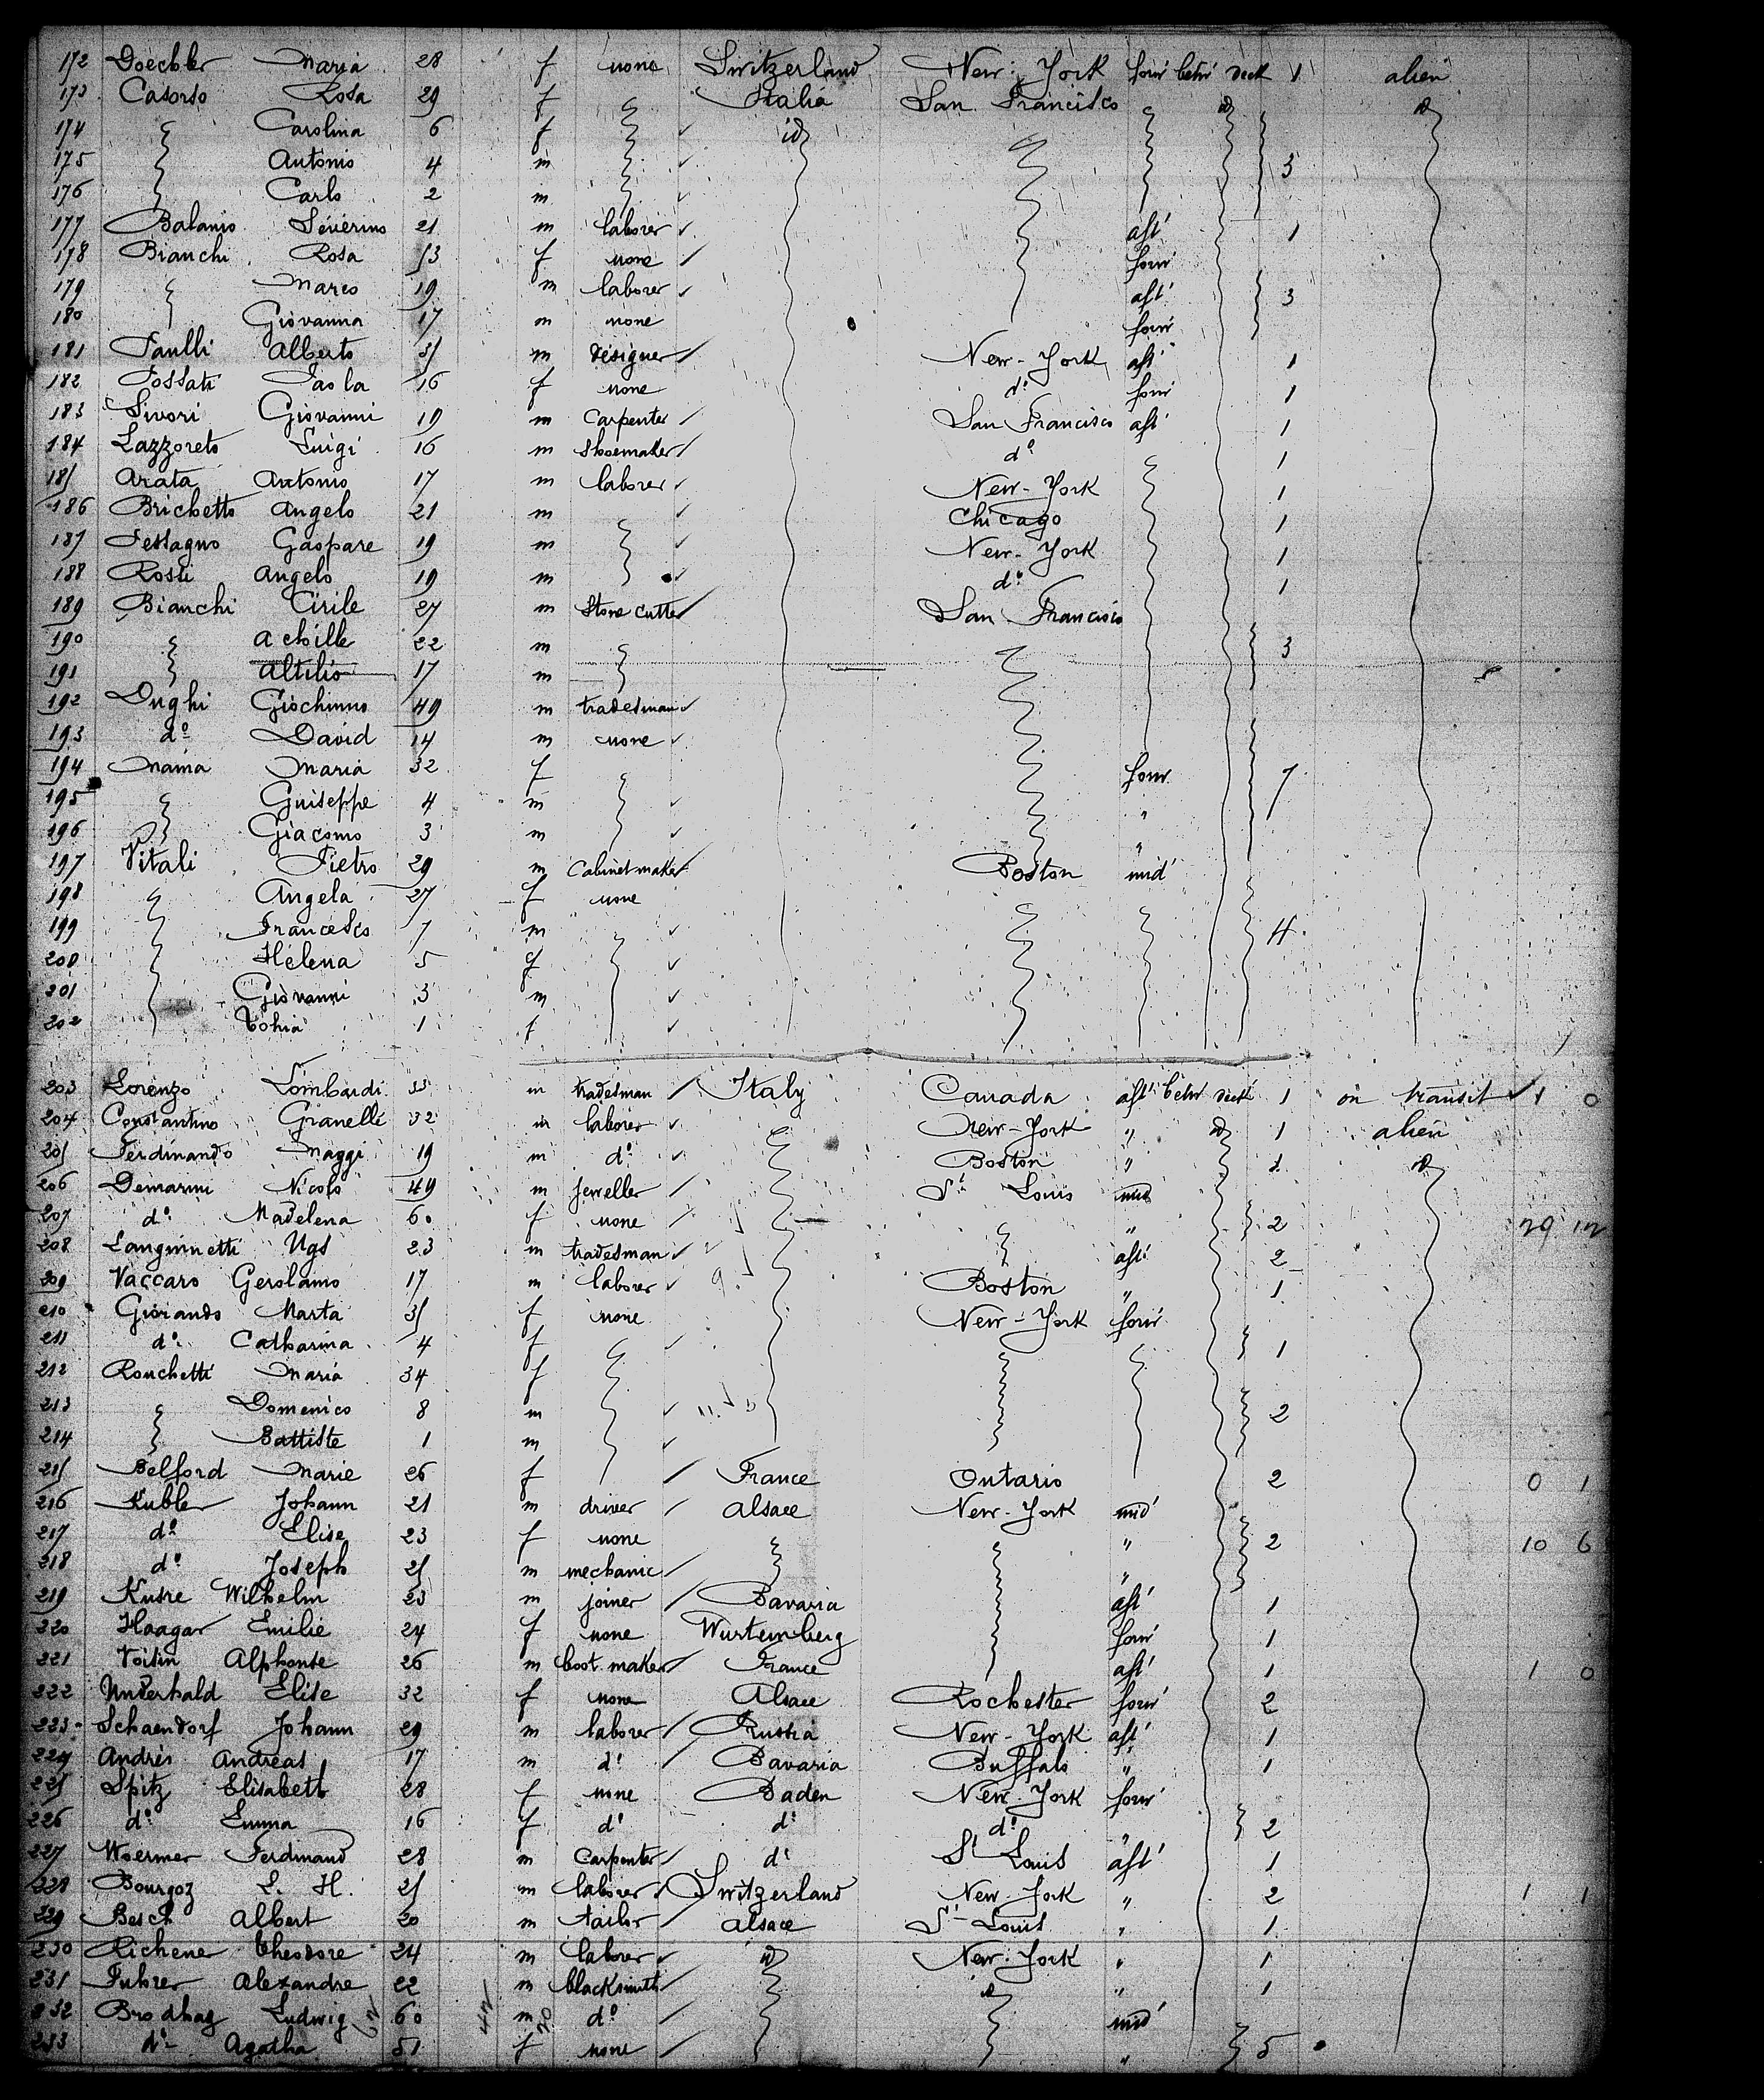 172 Doechler Maria 28 f none Switzerland New-York forw' betw' deck 1 alien
173 Casorso Rosa 29 f Italia San Francisco id id
174 Carolina 6 f id
175 Antonio 4 m 3
176 Carlo 2 m
177 Balanio Sévérino 21 m laborer aft' 1
178 Bianchi Rosa 53 f none forw'
179 Marco 19 m laborer aft' 3
180 Giovanna 17 m none forw'
181 Paulli Alberto 35 m designer New-York aft' 1
182 Fossati Paola 16 f none d° forw' 1
183 Sivori Giovanni 19 m carpenter San Francisco aft' 1
184 Lazzoreto Luigi 16 m shoemaker d° 1
185 Arata Antonio 17 m laborer New-York 1
186 Brichetto Angelo 21 m Chicago 1
187 Pessagno Gaspare 19 m New-York 1
188 Rossi Angelo 19 m d° 1
189 Bianchi Cirile 27 m Stone cutter San Francisco
190 Achille 22 m 3
191 Altilio 17 m
192 Dughi Giochinno 49 m tradesman
193 d° David 14 m none
194 Mama Maria 32 f forw' 7
195 Guiseppe 4 m "
196 Giacomo 3 m "
197 Vitali Pietro 29 m Cabinet maker Boston mid'
198 Angela 27 f none
199 Francesco 7 m 4
200 Héléna 5 f
201 Giovanni 3 m
202 Tohia 1 f
203 Lorenzo Lombardi 35 m tradesman Italy Canada aft' betw' deck 1 on transit 1 0
204 Constantino Granelli 32 m laborer New-York " id 1 alien
205 Ferdinando Maggi 19 m d° Boston " 1 id
206 Demarini Nicolo 49 m jeweller St Louis mid
207 d° Madelena 60 f none " 2 29 12
208 Sanguinetti Ugo 23 m tradesman aft' 2
209 Vaccaro Gerolamo 17 m laborer Boston " 1
210 Giorando Marta 35 f none New-York forw'
211 d° Catharina 4 f 1
212 Ronchetti Maria 34 f
213 Domenico 8 m 2
214 Battiste 1 m
215 Belford Marie 26 f France Ontario 2 0 1
216 Kubler Johann 21 m driver Alsace New-York mid'
217 d° Elise 23 f none " 2 10 6
218 d° Joseph 25 m mechanic "
219 Kusre Wilhelm 23 m joiner Bavaria aft' 1
220 Haagar Emilie 24 f none Wurtemberg forw' 1
221 Voisin Alphonse 26 m boot maker France aft' 1 1 0
222 Underhald Elise 32 f none Alsace Rochester forw' 2
223 Schaendorf Johann 29 m laborer Russia New-York aft' 1
224 Andrès Andreas 17 m d° Bavaria Buffalo " 1
225 Spitz Elisabeth 28 f none Baden New-York forw'
226 d° Emma 16 f d° d° d° " 2
227 Woermer Ferdinand 28 m carpenter d° St Louis aft' 1
228 Bourgoz L. H. 25 m laborer Switzerland New-York " 2 1 1
229 Besch Albert 20 m tailor Alsace St Louis " 1
230 Richener Theodore 24 m laborer id New-York " 1
231 Fuhrer Alexandre 22 m blacksmith id " 1
232 Brodhag Ludwig 60 m d° mid'
233 d° Agatha 51 f none " 5